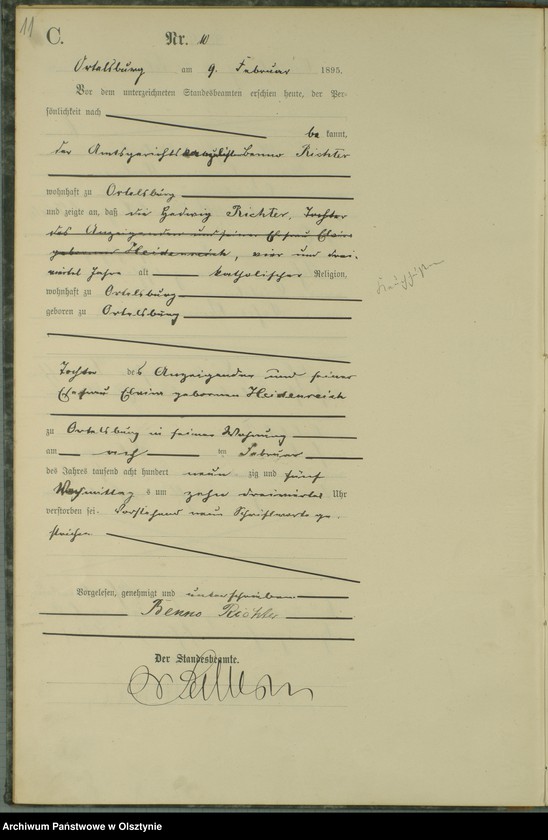 11
C.
Nr. 10
Ortelsburg am 9. Februar 1895.
Vor dem unterzeichneten Standesbeamten erschien heute, der Per-
sönlichkeit nach
be kannt,
der Amtsgerichts Benno Richter
wohnhaft zu Ortelsburg
und zeigte an, daß die Hedwig Richter, Tochter
des Anzeigenden und seiner Ehefrau Elvira
geborenen Heidenreich, vier und drei-
viertel Jahre alt katholischer Religion,
wohnhaft zu Ortelsburg
geboren zu Ortelsburg
Tochter des Anzeigenden und seiner
Ehefrau Elvira geborenen Heidenreich
zu Ortelsburg in seiner Wohnung
am acht ten Februar
des Jahres tausend acht hundert neun zig und fünf
Nachmittag s um zehn dreiviertel Uhr
verstorben sei. Vorstehend neun Schriftworte ge-
strichen.
Vorgelesen, genehmigt und unterschrieben
Benno Richter
Der Standesbeamte.
Archiwum Państwowe w Olsztynie